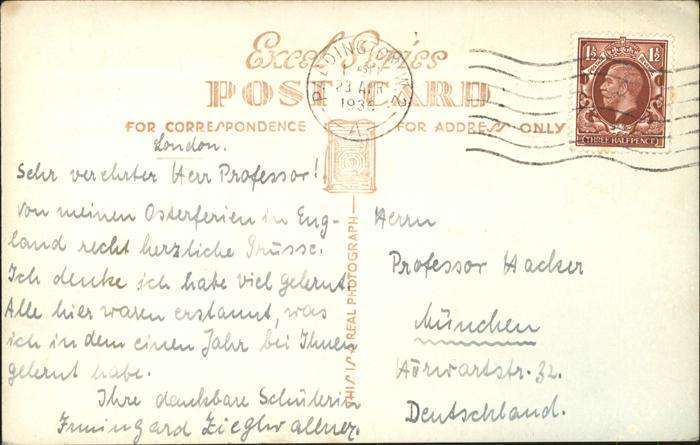 Excel Series
POST CARD
FOR CORRESPONDENCE
FOR ADDRESS ONLY
PADDINGTON. W.2
23 APR
1936
A
1½ 1½
THREE HALFPENCE
London.
Sehr verehrter Herr Professor!
Von meinen Osterferien in Eng-
land recht herzliche Grüsse.
Ich denke ich habe viel gelernt.
Alle hier waren erstaunt, was
ich in dem einen Jahr bei Ihnen
gelernt habe.
Ihre dankbare Schülerin
Irmingard Zieglwallner.
THIS IS A REAL PHOTOGRAPH
Herrn
Professor Hacker
München
Hörwartstr. 32.
Deutschland.